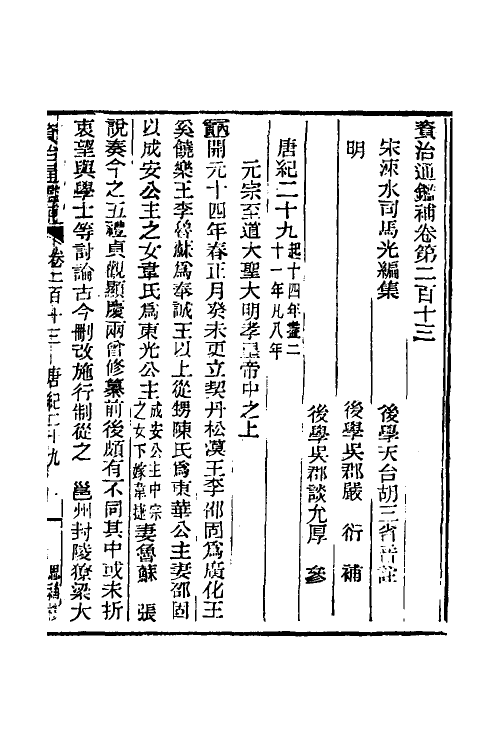 資治通鑑補卷第二百十三
宋涑水司馬光編集　後學天台胡三省音註
明　後學吳郡嚴　衍　補
後學吳郡談允厚　參
唐紀二十九起十四年盡二十一年凡八年
元宗至道大聖大明孝皇帝中之上
開元十四年春正月癸未更立契丹松漠王李邵固爲廣化王
奚饒樂王李魯蘇爲奉誠王以上從甥陳氏爲東華公主妻邵固
以成安公主之女韋氏爲東光公主成安公主中宗之女下嫁韋捷妻魯蘇　張
說奏今之五禮貞觀顯慶兩曾修纂前後頗有不同其中或未折
衷望與學士等討論古今刪改施行制從之　邕州封陵獠梁大
資治通鑑補　卷二百十三　唐紀二十九　一